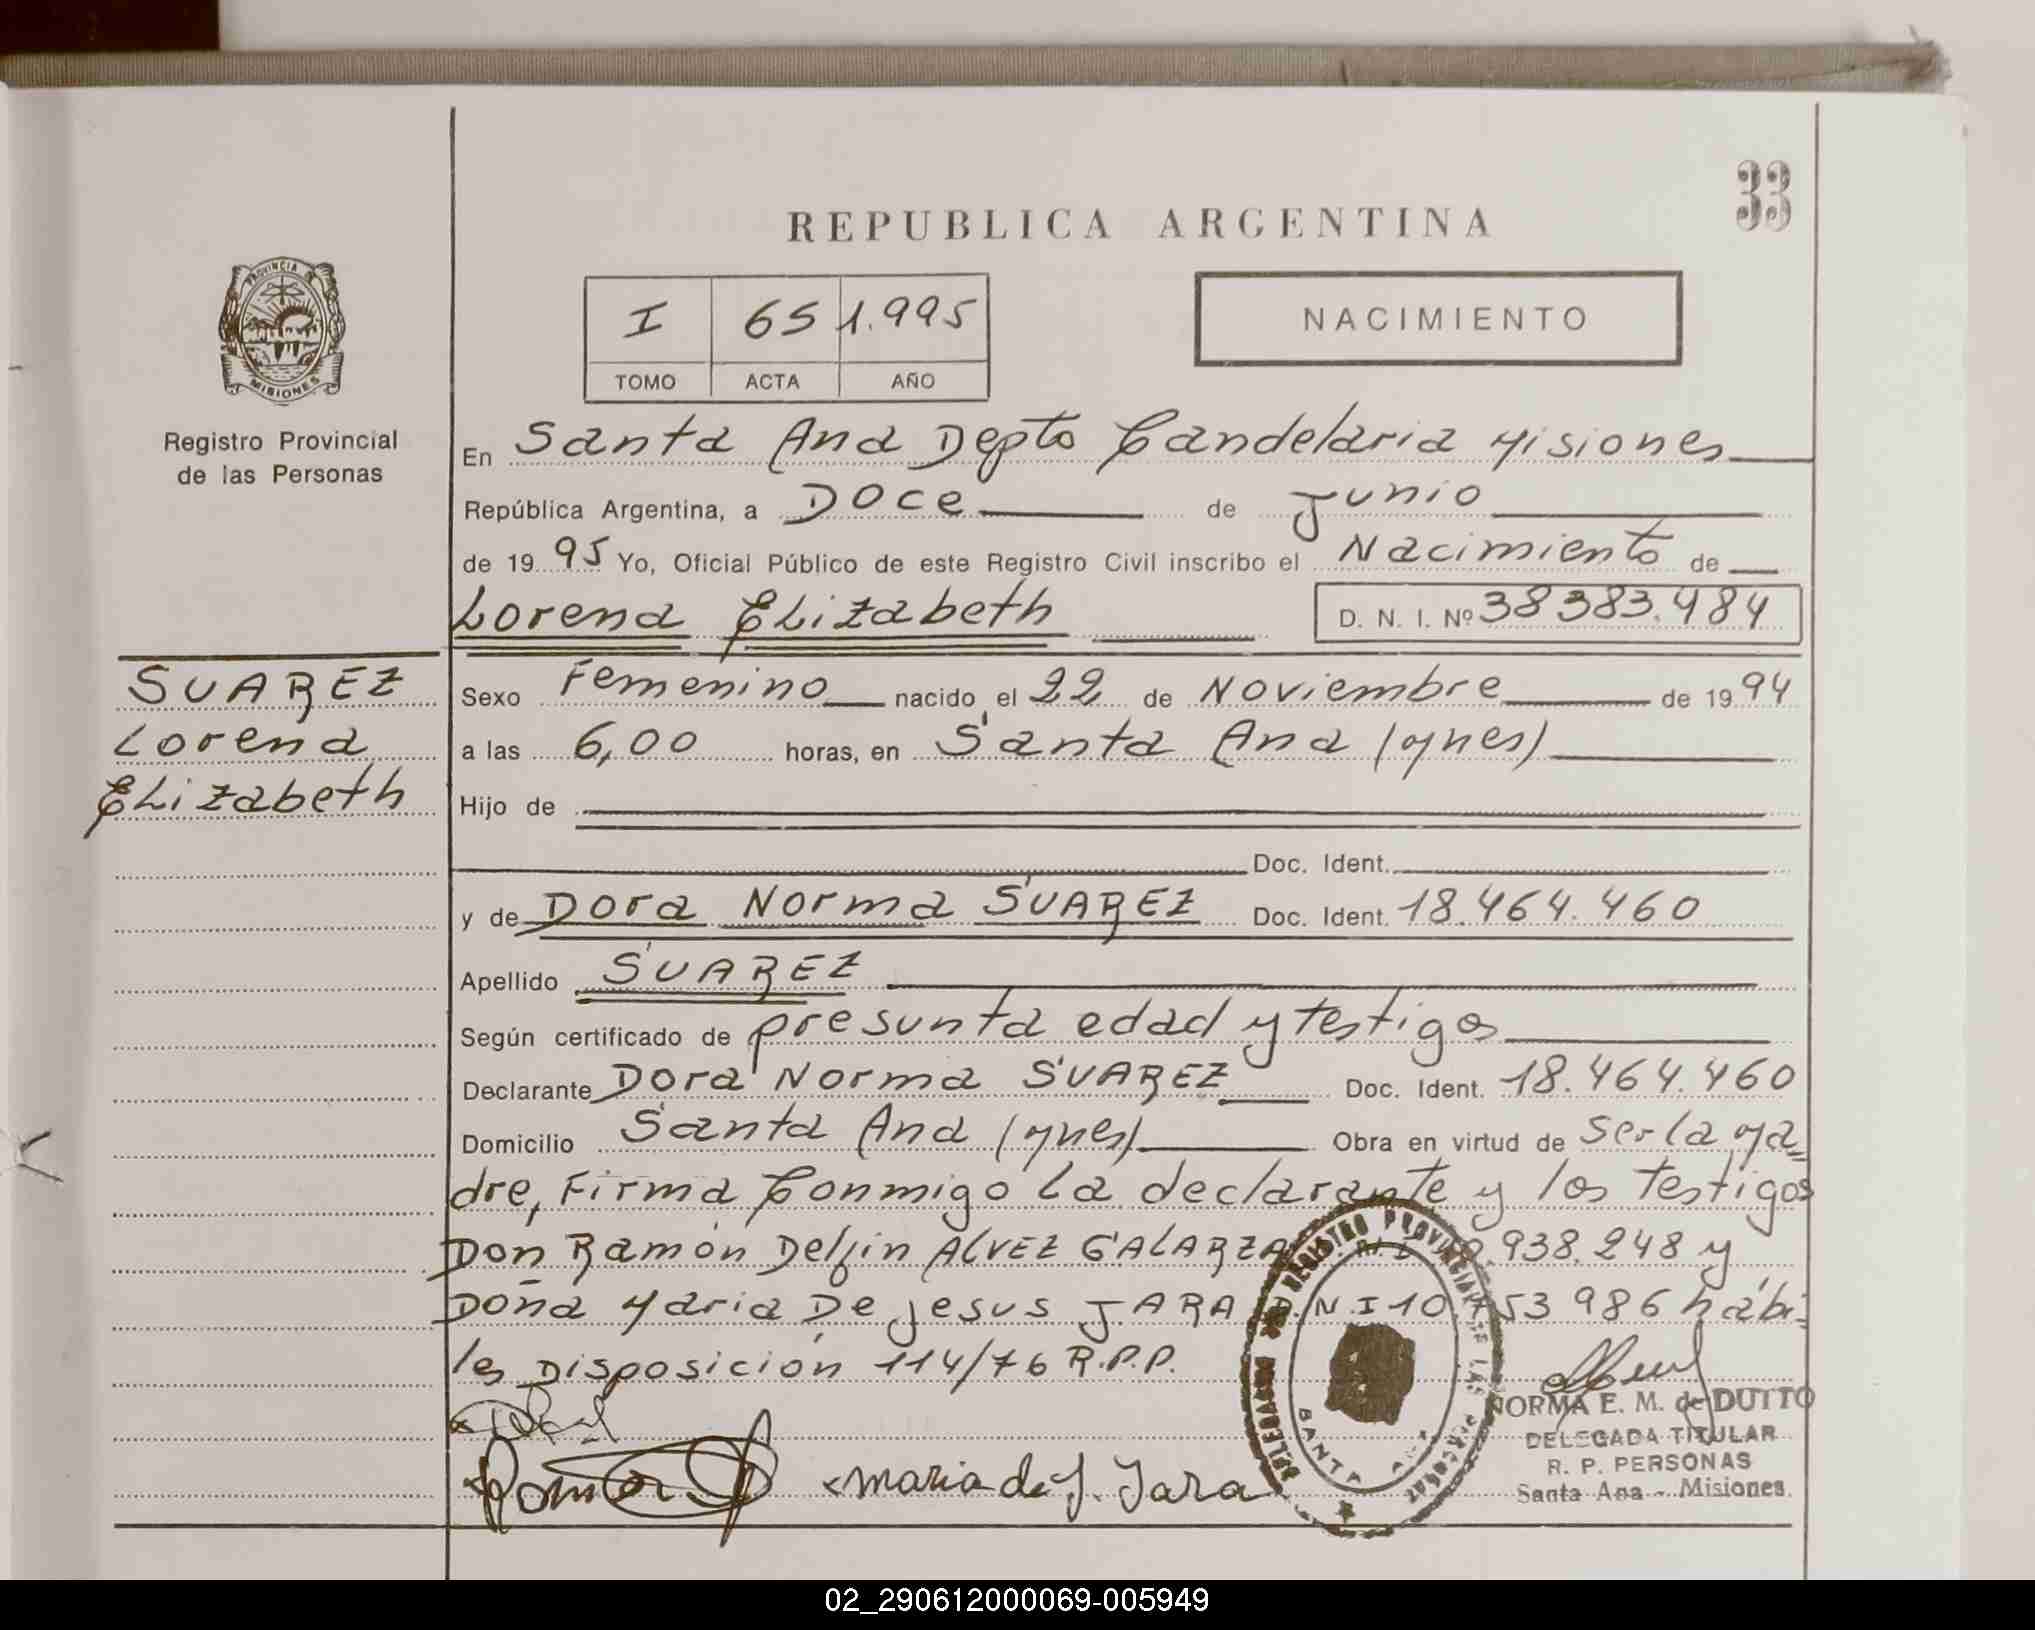 33
REPUBLICA ARGENTINA
PROVINCIA DE
MISIONES
I 65 1.995
TOMO ACTA AÑO
NACIMIENTO
Registro Provincial
de las Personas
En Santa Ana Depto Candelaria Misiones
República Argentina, a Doce de Junio
de 1995 Yo, Oficial Público de este Registro Civil inscribo el Nacimiento de
Lorena Elizabeth D. N. I. Nº 38383.484
SUAREZ
Lorena
Elizabeth
Sexo Femenino nacido el 22 de Noviembre de 1994
a las 6,00 horas, en Santa Ana (Mnes)
Hijo de
Doc. Ident.
y de Dora Norma SUAREZ Doc. Ident. 18.464.460
Apellido SUAREZ
Según certificado de presunta edad y testigos
Declarante Dora Norma SUAREZ Doc. Ident. 18.464.460
Domicilio Santa Ana (Mnes) Obra en virtud de Ser la Ma
dre, Firma Conmigo La declarante y los Testigos
Don Ramón Delfin ALVEZ GALARZA 938.248 y
Doña Maria De Jesus JARA D.N.I 10 53 986 hábi=
les Disposición 114/76 R.P.P.
maria de J. Jara
DELEGACION DEL REGISTRO PROVINCIAL DE LAS PERSONAS
SANTA ANA
NORMA E. M. de DUTTO
DELEGADA TITULAR
R. P. PERSONAS
Santa Ana - Misiones
02_290612000069-005949